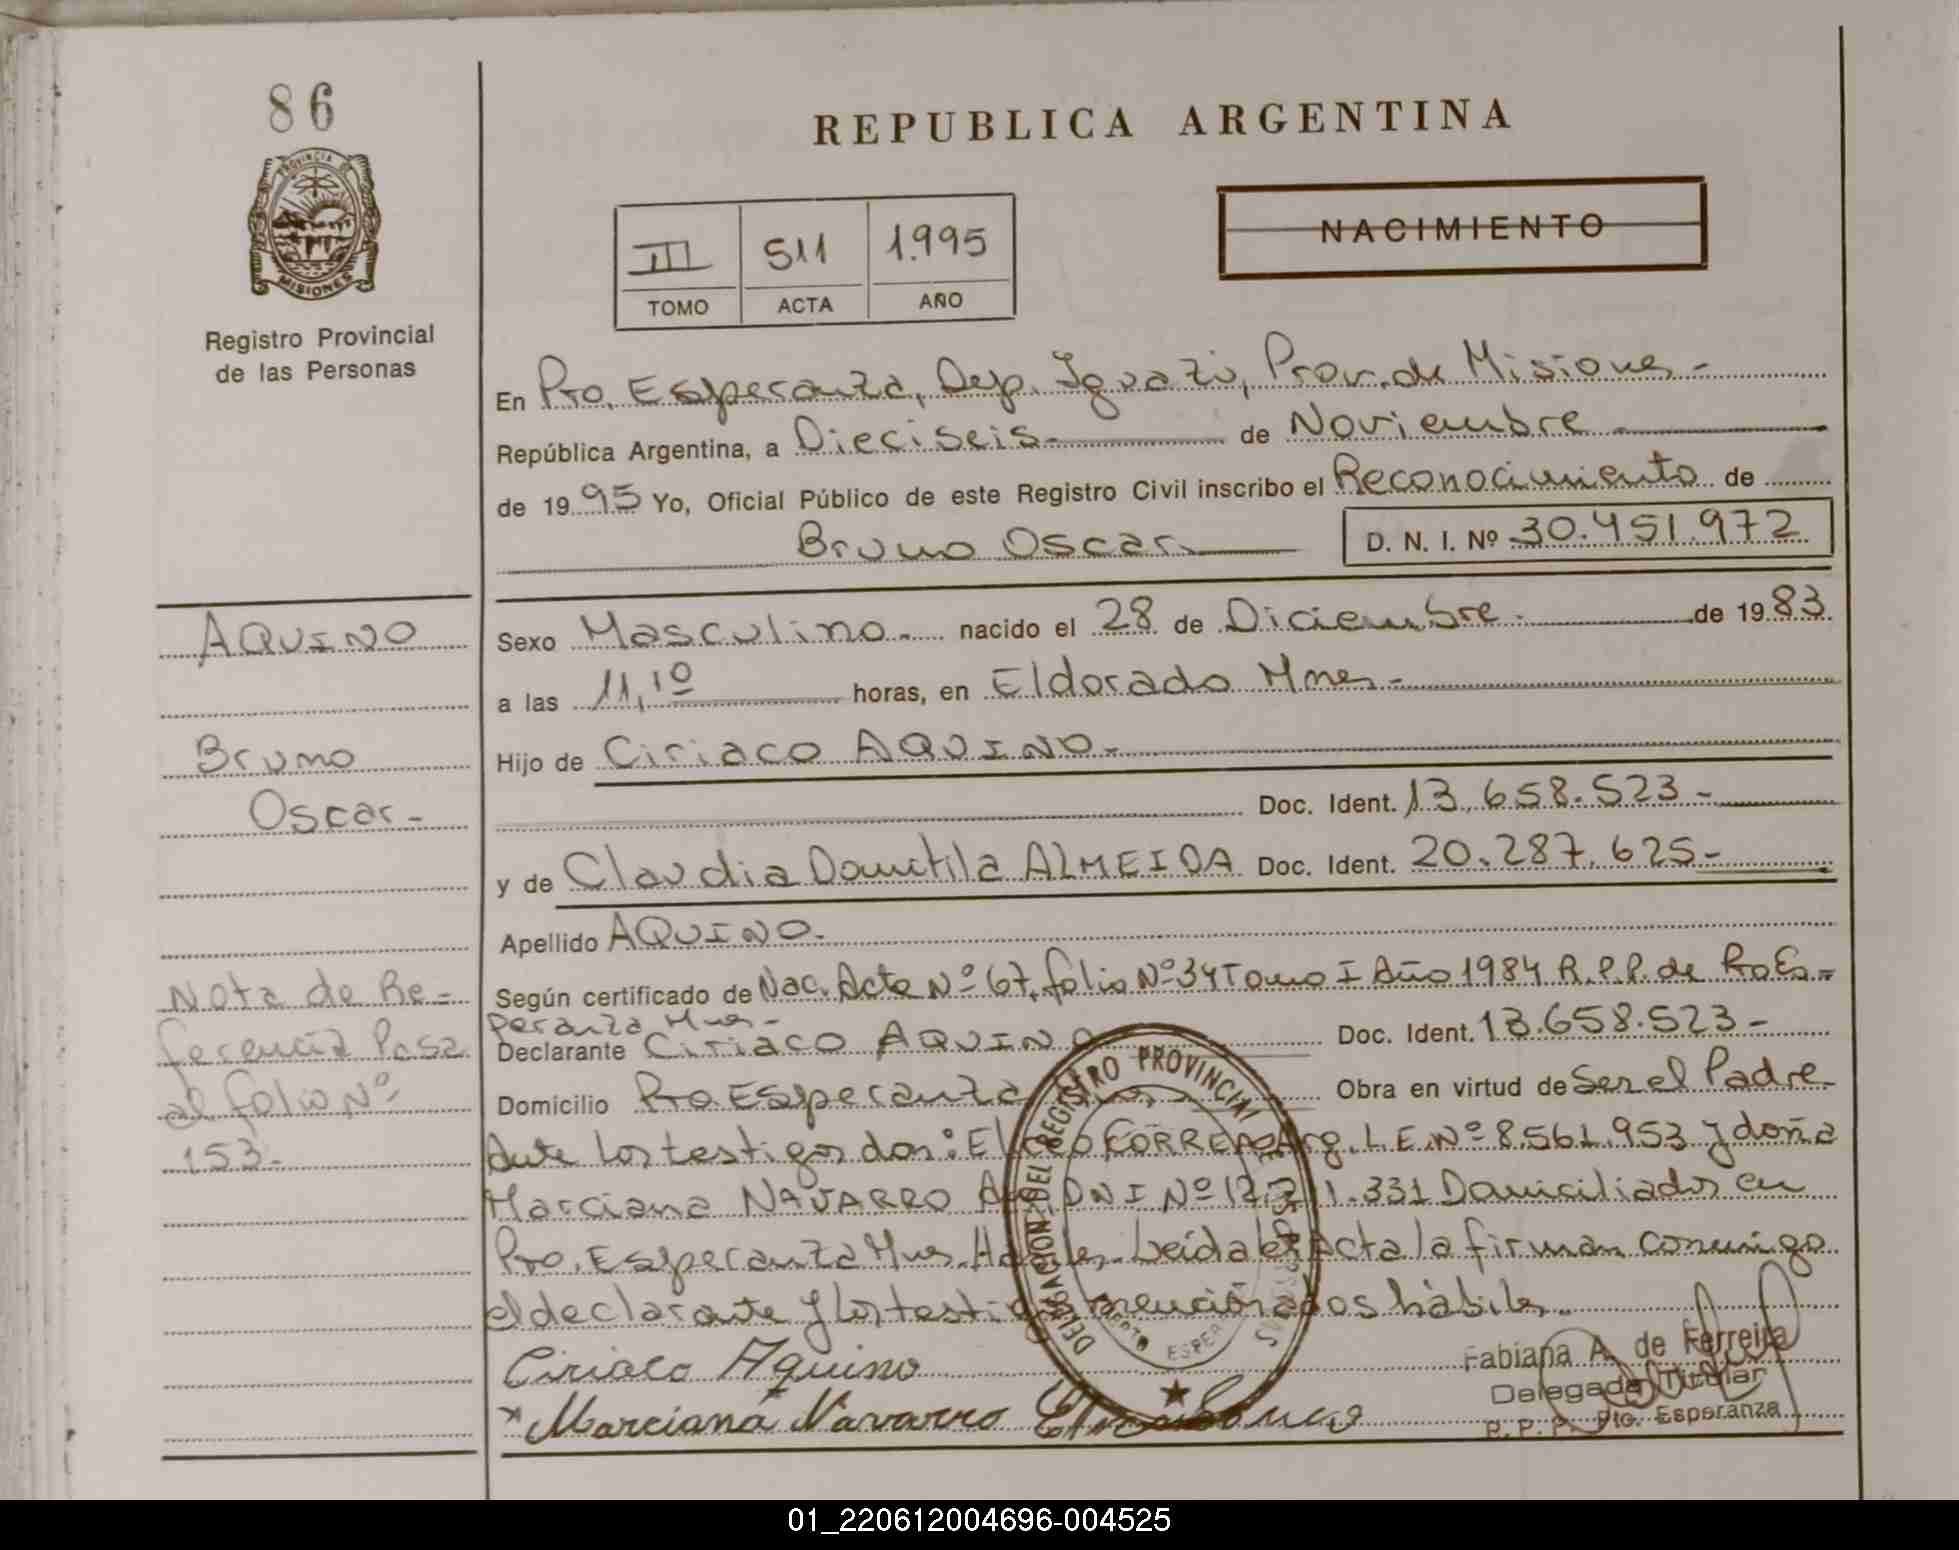 86
PROVINCIA DE
MISIONES
Registro Provincial
de las Personas
REPUBLICA ARGENTINA
NACIMIENTO
III 511 1.995
TOMO ACTA AÑO
En Pto. Esperanza, Dep. Iguazú, Prov. de Misiones -
República Argentina, a Dieciseis. de Noviembre
de 1995 Yo, Oficial Público de este Registro Civil inscribo el Reconocimiento de
Bruno Oscar D. N. I. Nº 30.451.972
AQUINO
Bruno
Oscar -
Nota de Re-
ferencia Pasa
al folio Nº
153.
Sexo Masculino. nacido el 28 de Diciembre. de 1983
a las 11,10 horas, en Eldorado Mnes -
Hijo de Ciriaco AQUINO -
Doc. Ident. 13.658.523 -
y de Claudia Domitila ALMEIDA Doc. Ident. 20.287.625 -
Apellido AQUINO.
Según certificado de Nac. Acta Nº 67, folio Nº 34 Tomo I Año 1984 R.P.P. de Pto Es-
peranza Mnes -
Declarante Ciriaco AQUINO Doc. Ident. 13.658.523 -
Domicilio Pto Esperanza Obra en virtud de Ser el Padre
Ante los testigos don: CORREA Arg. L.E. Nº 8.561.953 y doña
Marciana NAVARRO DNI Nº Domiciliados en
Pto. Esperanza Mnes. Leida el Acta la firman conmigo
el declarante y los testigos mencionados hábiles.
DELEGACION DEL REGISTRO PROVINCIAL
ESPERANZA
Ciriaco Aquino
Marciana Navarro
Fabiana A. de Ferreira
Delegada Titular
R. P. P. Pto. Esperanza
01_220612004696-004525